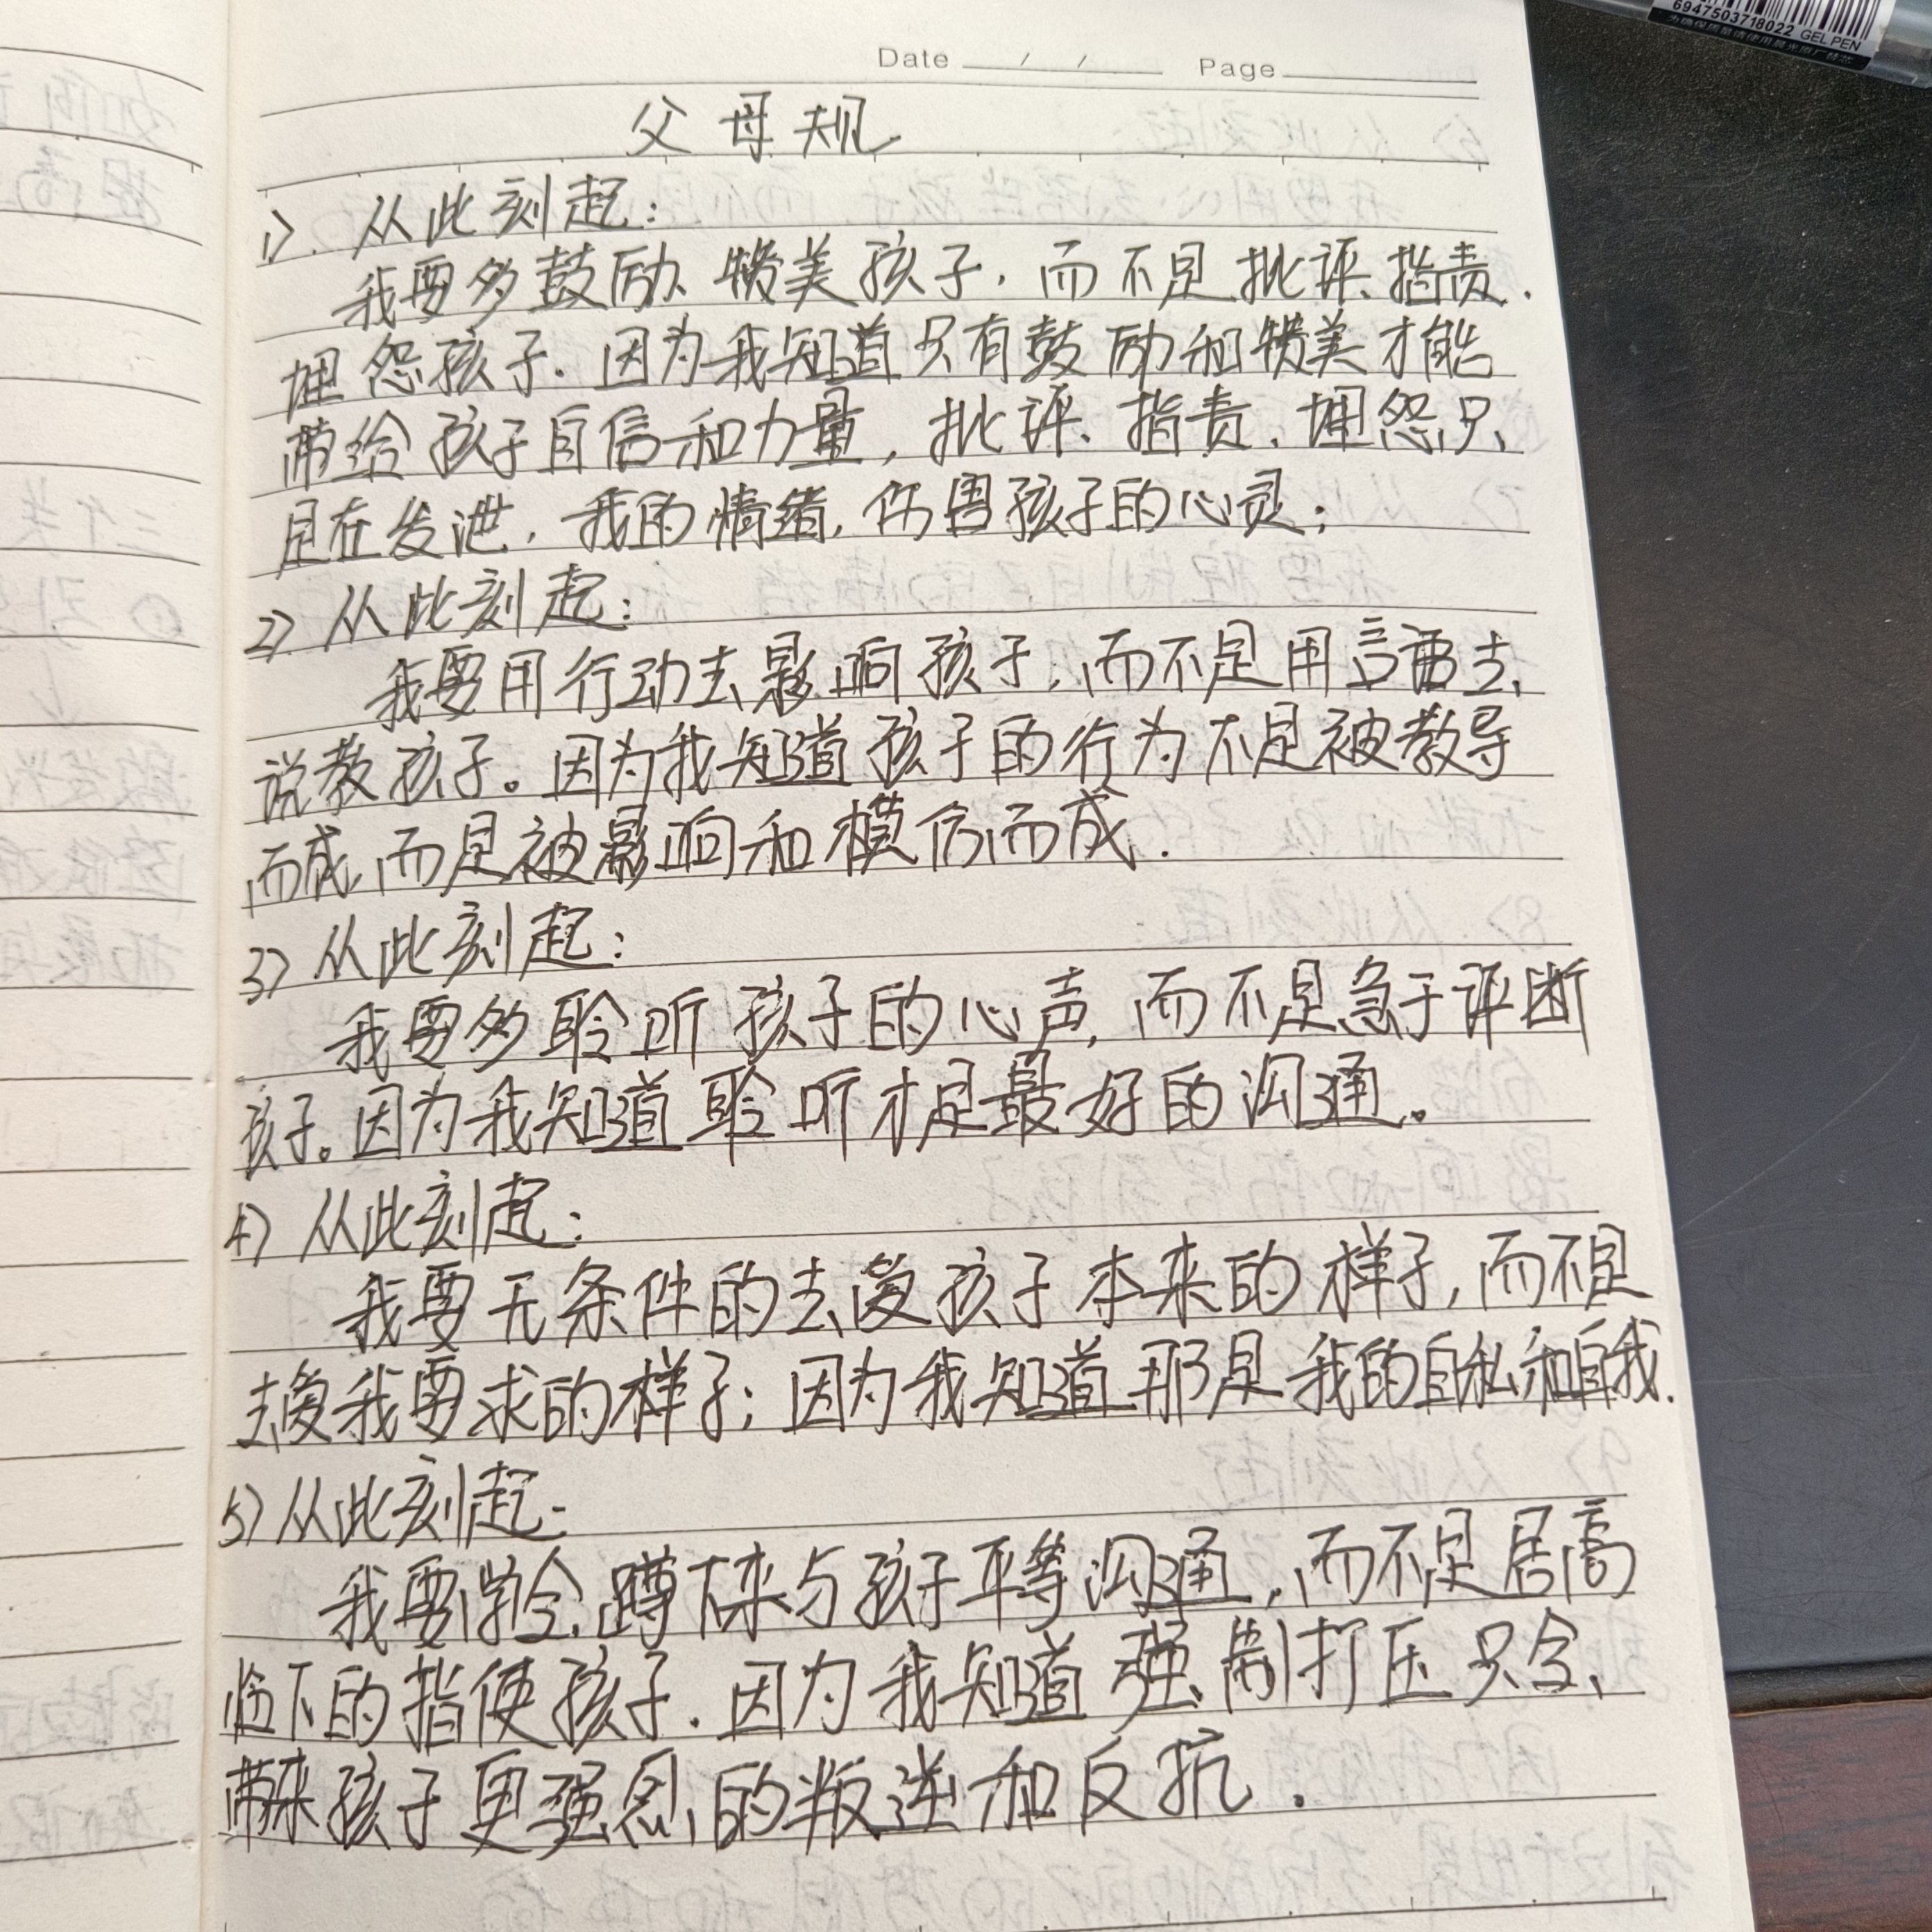 6947503718022 GEL PEN
Date / / Page
父母规
1>. 从此刻起:
我要多鼓励、赞美孩子,而不是批评、指责、
埋怨孩子.因为我知道只有鼓励和赞美才能
带给孩子自信和力量,批评、指责、埋怨只
是在发泄,我的情绪,伤害孩子的心灵;
2> 从此刻起:
我要用行动去影响孩子,而不是用言语去
说教孩子。因为我知道孩子的行为不是被教导
而成,而是被影响和模仿而成.
3> 从此刻起:
我要多聆听孩子的心声,而不是急于评断
孩子。因为我知道聆听才是最好的沟通。
4> 从此刻起:
我要无条件的去爱孩子本来的样子,而不是
去爱我要求的样子;因为我知道那是我的自私和自我.
5> 从此刻起:
我要学会蹲下来与孩子平等沟通,而不是居高
临下的指使孩子.因为我知道强制打压只会
带来孩子更强烈的叛逆和反抗.